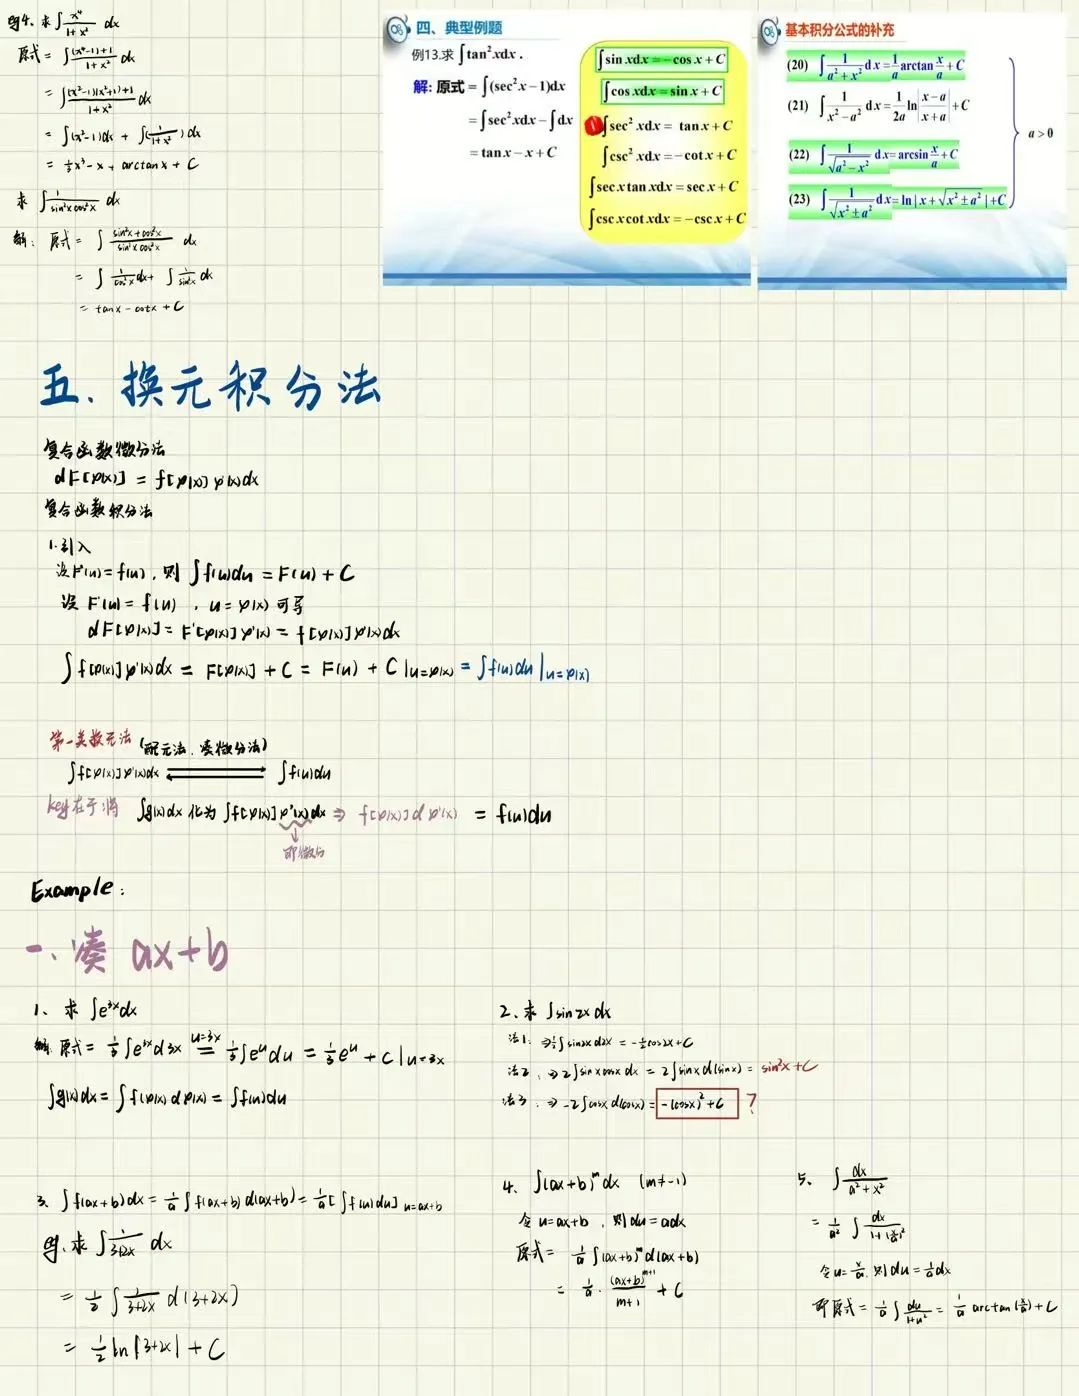 例4. 求 ∫ x⁴/(1+x²) dx
原式 = ∫ ((x⁴-1)+1)/(1+x²) dx
= ∫ ((x²-1)(x²+1)+1)/(1+x²) dx
= ∫(x²-1)dx + ∫(1/(1+x²))dx
= ⅓x³-x+arctanx+C
求 ∫ 1/(sin²xcos²x) dx
解: 原式 = ∫ (sin²x+cos²x)/(sin²xcos²x) dx
= ∫ 1/cos²x dx + ∫ 1/sin²x dx
= tanx-cotx+C
四、典型例题
例13.求 ∫tan²xdx.
解: 原式 = ∫(sec²x-1)dx
= ∫sec²xdx - ∫dx
= tanx-x+C
∫sin xdx = -cos x+C
∫cos xdx = sin x+C
① ∫sec² xdx = tan x+C
∫csc² xdx = -cot x+C
∫sec x tan xdx = sec x+C
∫csc x cot xdx = -csc x+C
基本积分公式的补充
(20) ∫ 1/(a²+x²) dx = 1/a arctan x/a + C
(21) ∫ 1/(x²-a²) dx = 1/2a ln|(x-a)/(x+a)| + C
(22) ∫ 1/√(a²-x²) dx = arcsin x/a + C
(23) ∫ 1/√(x²±a²) dx = ln|x+√(x²±a²)|+C
a>0
五. 换元积分法
复合函数微分法
dF[φ(x)] = f[φ(x)]φ'(x)dx
复合函数积分法
1.引入
设F'(u)=f(u), 则 ∫f(u)du = F(u)+C
设 F'(u)=f(u), u=φ(x)可导
dF[φ(x)] = F'[φ(x)]φ'(x) = f[φ(x)]φ'(x)dx
∫f[φ(x)]φ'(x)dx = F[φ(x)]+C = F(u)+C|u=φ(x) = ∫f(u)du|u=φ(x)
第一类换元法 (配元法、凑微分法)
∫f[φ(x)]φ'(x)dx ⇌ ∫f(u)du
key在于:将 ∫g(x)dx 化为 ∫f[φ(x)]φ'(x)dx ⇒ f[φ(x)]dφ'(x) = f(u)du
即微分
Example:
一、凑 ax+b
1、求 ∫e³ˣdx
解 原式 = ⅓∫e³ˣd3x =(u=3x) ⅓∫eᵘdu = ⅓eᵘ+C|u=3x
∫g(x)dx = ∫f(φ(x))dφ(x) = ∫f(u)du
2、求 ∫sin2xdx
法1: ⇒½∫sin2xd2x = -½cos2x+C
法2. ⇒2∫sinxcosxdx = 2∫sinxd(sinx) = sin²x+C
法3. ⇒ -2∫cosxd(cosx) = -(cosx)²+C ?
3、∫f(ax+b)dx = 1/a ∫f(ax+b)d(ax+b) = 1/a[∫f(u)du]u=ax+b
例. 求 ∫ 1/(3+2x) dx
= ½ ∫ 1/(3+2x) d(3+2x)
= ½ ln|3+2x|+C
4、∫(ax+b)ᵐdx (m≠-1)
令 u=ax+b, 则du=adx
原式 = 1/a ∫(ax+b)ᵐd(ax+b)
= 1/a · (ax+b)ᵐ⁺¹/(m+1) + C
5、∫ dx/(a²+x²)
= 1/a² ∫ dx/(1+(x/a)²)
令u=x/a, 则du=1/a dx
即原式 = 1/a ∫ du/(1+u²) = 1/a arctan(x/a)+C